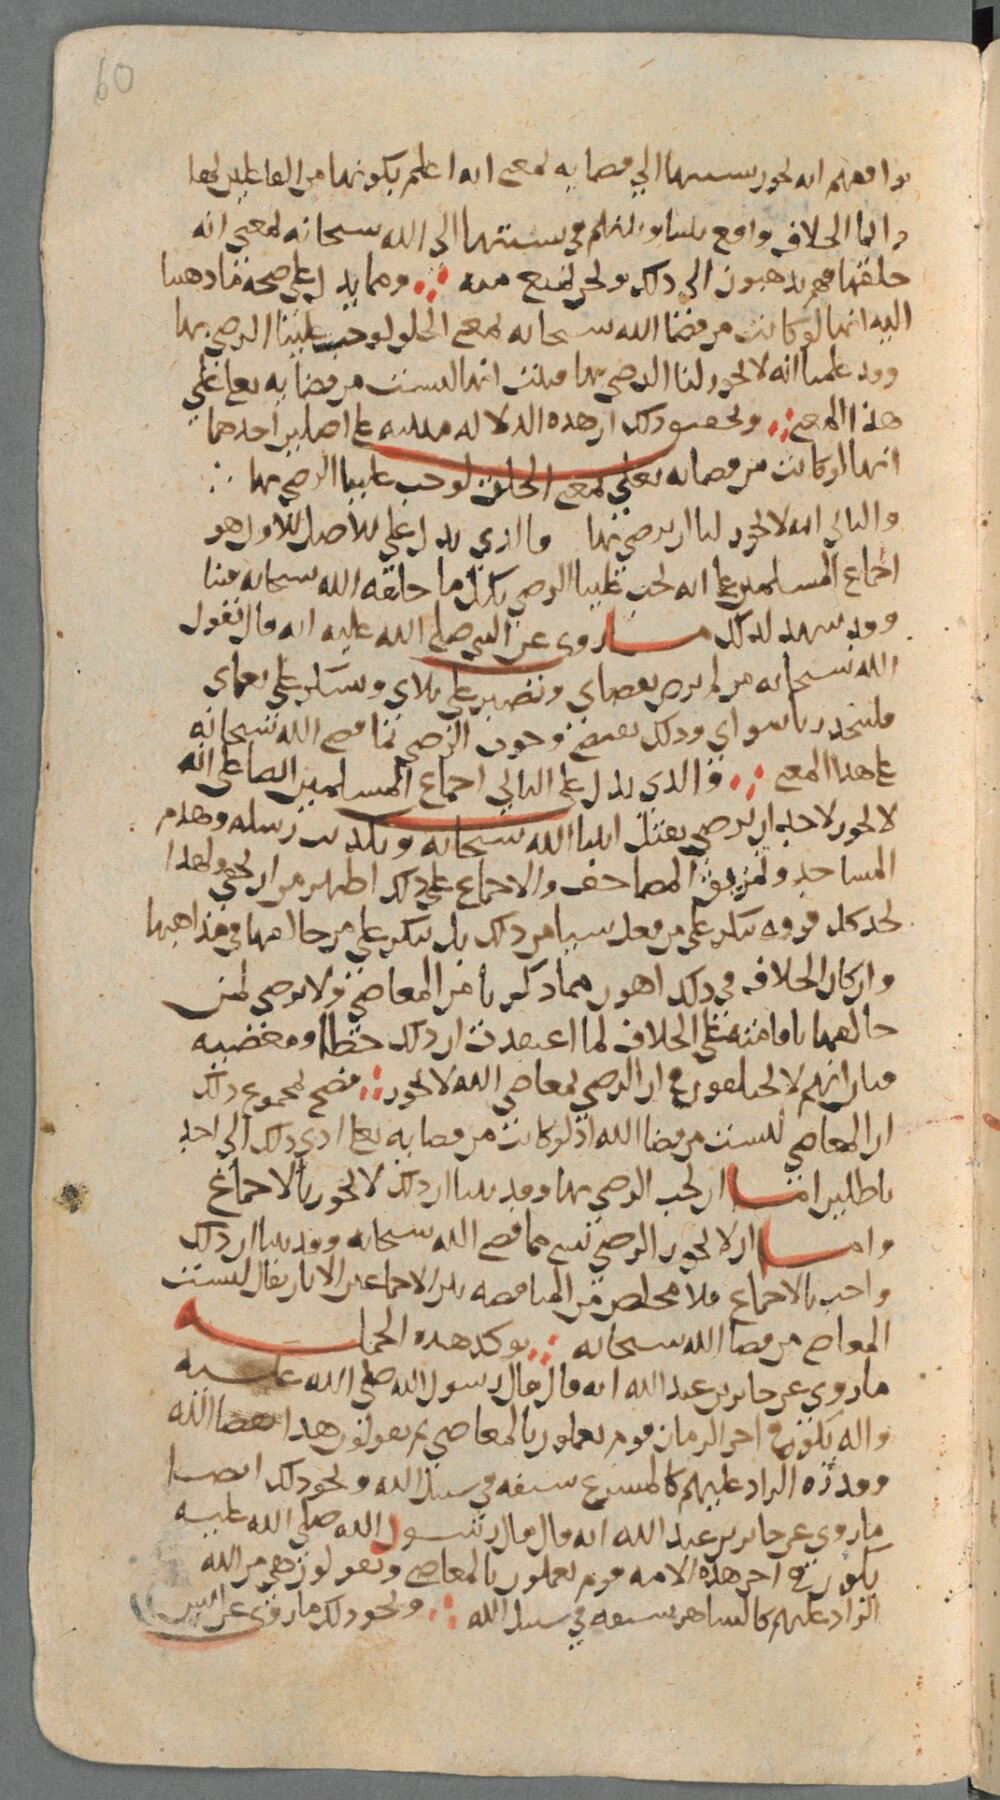 60
نوافقهم انه يجوز نسبتها الى قضايه بمعنى انه اعلم بكونها من الفاعلين لها
وانما الخلاف واقع بيننا وبينهم في نسبتها الى الله سبحانه بمعنى انه
خلقها فهم يذهبون الى ذلك ونحن نمنع منه ومما يدل على صحة ما ذهبنا
اليه انها لو كانت من قضا الله سبحانه بمعنى الخلق لوجب علينا الرضى بها
وقد علمنا انه لا يجوز لنا الرضى بها فثبت انها ليست من قضايه تعالى على
هذا المعنى وتحقيق ذلك ان هذه الدلاله مبنيه على اصلين احدهما
انها لو كانت من قضايه تعالى بمعنى الخلق لوجب علينا الرضى بها
والثاني انه لا يجوز لنا ان نرضى بها فالذي يدل على الاصل الاول هو
اجماع المسلمين على انه يجب علينا الرضى بكل ما خلقه الله سبحانه فينا
وقد شهد لذلك ما روي عن النبي صلى الله عليه انه قال يقول
الله سبحانه من لم يرض بقضاي ويصبر على بلاي ويشكر على نعماي
فليتخذ ربا سواي وذلك يقتضي وجوب الرضى بما قضى الله سبحانه
على هذا المعنى والذي يدل على الثاني اجماع المسلمين ايضا على انه
لا يجوز لاحد ان يرضى بقتل انبيا الله سبحانه وتكذيب رسله وهدم
المساجد وتمزيق المصاحف والاجماع على ذلك اظهر من ان يخفى ولهذا
نجد كل فرقه تنكر على من فعل شيا من ذلك بل تنكر على من خالفها في مذاهبها
وان كان الخلاف في ذلك اهون مما ذكرنا من المعاصي ولا ترضى لمن
خالفها باقامته على الخلاف لما اعتقدت ان ذلك خطا ومعصيه
فبان انهم لا يختلفون في ان الرضى بمعاصي الله لا يجوز فصح بمجموع ذلك
ان المعاصي ليست من قضا الله اذ لو كانت من قضايه تعالى ادى ذلك الى احد
باطلين اما ان يجب الرضى بها وقد بينا ان ذلك لا يجوز بالاجماع
واما ان لا يجوز الرضى بشي مما قضى الله سبحانه وقد بينا ان ذلك
واجب بالاجماع فلا مخلص من المناقضه بين الاجماعين الا بان يقال ليست
المعاصي من قضا الله سبحانه يوكد هذه الجمله
ما روي عن جابر بن عبد الله انه قال قال رسول الله صلى الله عليه
واله يكون في اخر الزمان قوم يعملون بالمعاصي ثم يقولون هذا بقضا الله
وقدره الراد عليهم كالمشرع سيفه في سبيل الله ونحو ذلك ايضا
ما روي عن جابر بن عبد الله انه قال قال رسول الله صلى الله عليه
يكون في اخر هذه الامه قوم يعملون بالمعاصي ويقولون هي من الله
الراد عليهم كالشاهر سيفه في سبيل الله ونحو ذلك ما روي عن النبي